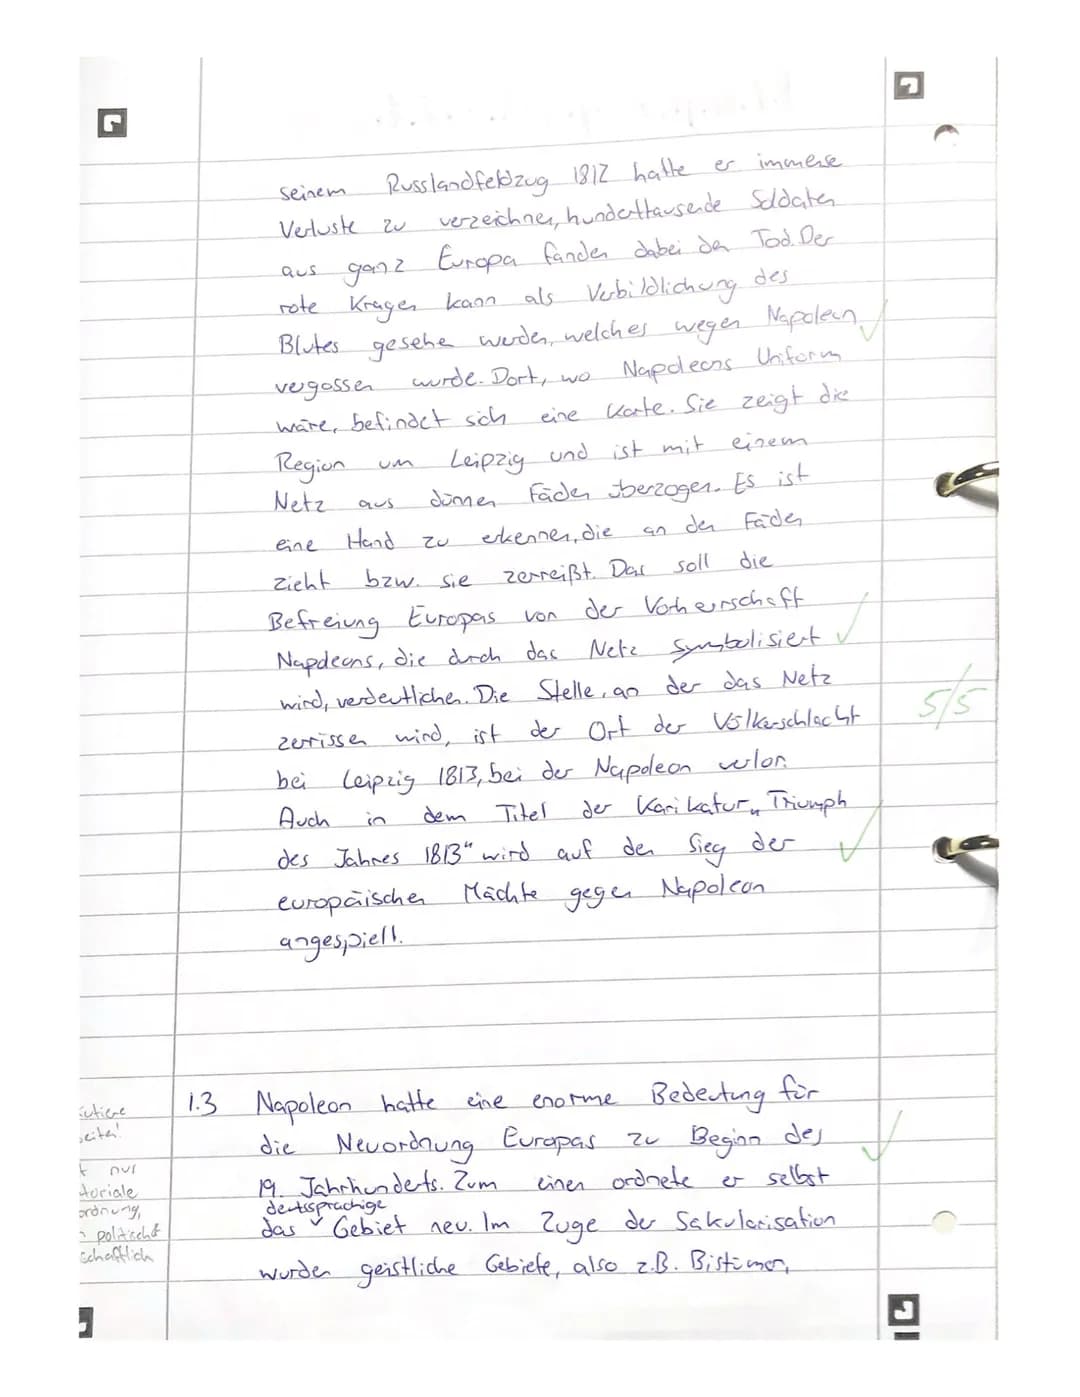 seinem Russlandfeldzug 1812 hatte er immense
Verluste zu verzeichnen, hunderttausende Soldaten
aus ganz Europa fanden dabei den Tod. Der
rote Kragen kann als Verbildlichung des
Blutes gesehe werden, welches wegen Napoleon
vergossen wurde. Dort, wo Napoleons Uniform
wäre, befindet sich eine Karte. Sie zeigt die
Region um Leipzig und ist mit einem
Netz aus dünnen Fäden überzogen. Es ist
eine Hand zu erkennen, die an den Fäden
zieht bzw. sie zerreißt. Das soll die
Befreiung Europas von der Vorherrschaft
Napoleons, die durch das Netz symbolisiert
wird, verdeutlichen. Die Stelle, an der das Netz
zerrissen wird, ist der Ort der Völkerschlacht
5/5
bei Leipzig 1813, bei der Napoleon verlor.
Auch in dem Titel der Karikatur „Triumph
des Jahres 1813" wird auf den Sieg der
europäischen Mächte gegen Napoleon
angespielt.
1.3 Napoleon hatte eine enorme Bedeutung für
die Neuordnung Europas zu Beginn des
19. Jahrhunderts. Zum einen ordnete er selbst
deutssprachige
das Gebiet neu. Im Zuge der Säkularisation
wurden geistliche Gebiete, also z.B. Bistümer,
nur
politisch &